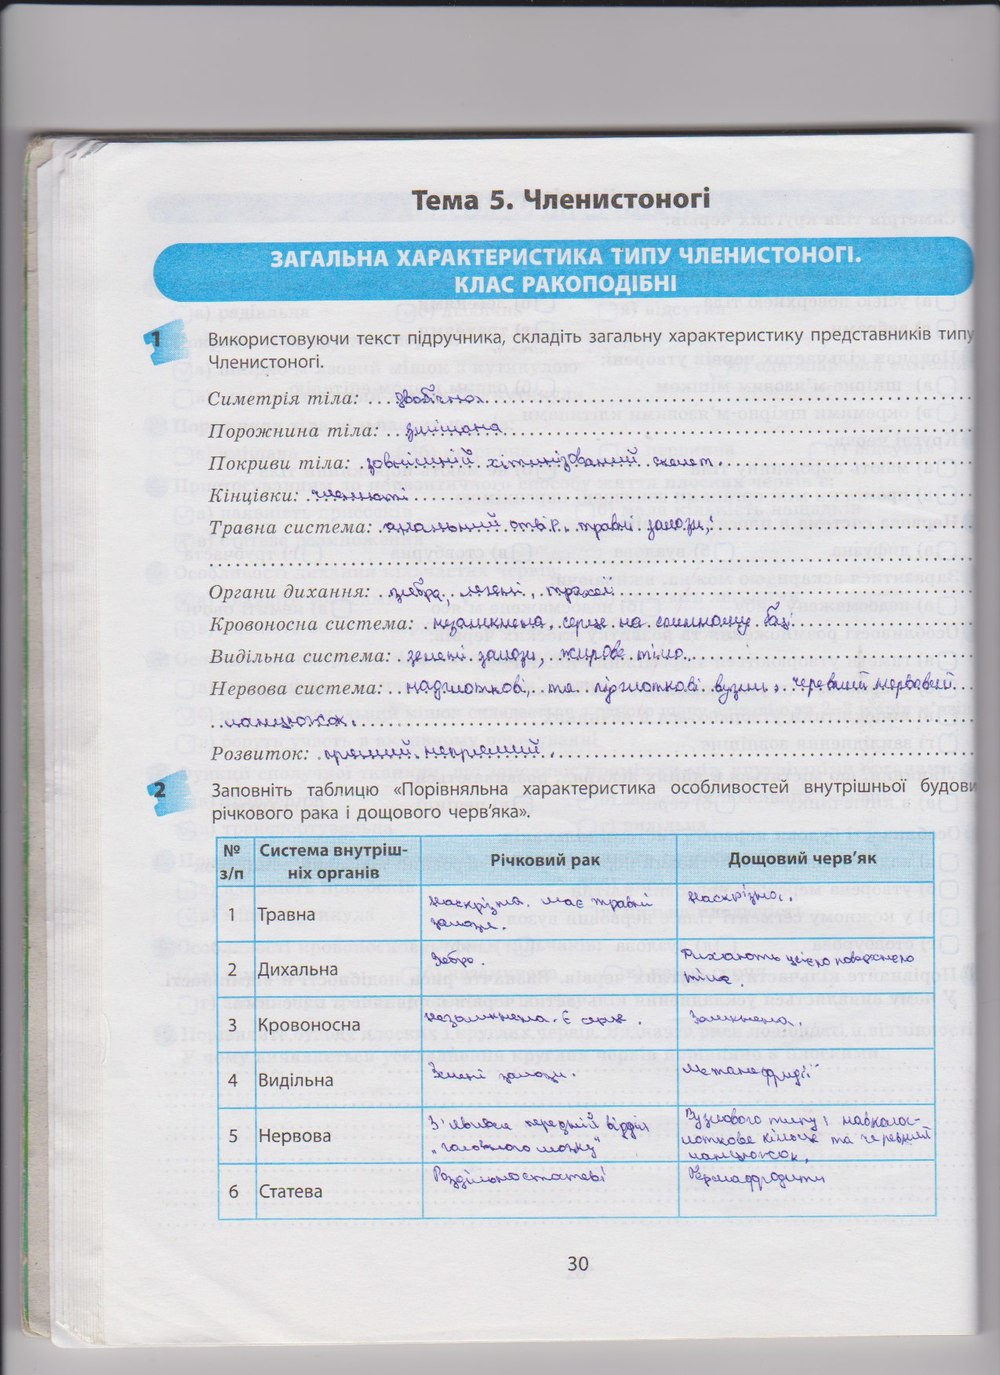 Тема 5. Членистоногі
ЗАГАЛЬНА ХАРАКТЕРИСТИКА ТИПУ ЧЛЕНИСТОНОГІ.
КЛАС РАКОПОДІБНІ
1 Використовуючи текст підручника, складіть загальну характеристику представників типу
Членистоногі.
Симетрія тіла: двобічна.
Порожнина тіла: змішана
Покриви тіла: зовнішній хітинізований скелет.
Кінцівки: членисті
Травна система: анальний отвір, травні залози,
Органи дихання: зябра, легені, трахеї
Кровоносна система: незамкнена, серце на спинному боці
Видільна система: зелені залози, жирове тіло.
Нервова система: надглоткові, та підглоткові вузли, черевний нервовий
ланцюжок.
Розвиток: прямий, непрямий.
2 Заповніть таблицю «Порівняльна характеристика особливостей внутрішньої будови
річкового рака і дощового черв'яка».
№ з/п Система внутріш- Річковий рак Дощовий черв'як
ніх органів
1 Травна наскрізна. має травні залози. наскрізна.
2 Дихальна Зябра. Дихають цією поверхнею тіла.
3 Кровоносна незамкнена. Є серце. Замкнена.
4 Видільна Зелені залози. Метанефридії
5 Нервова З'явився передній відділ „головного мозку" Вузлового типу; навколог-
лоткове кільце та черевний
ланцюжок.
6 Статева Роздільностатеві Гермафродити
30